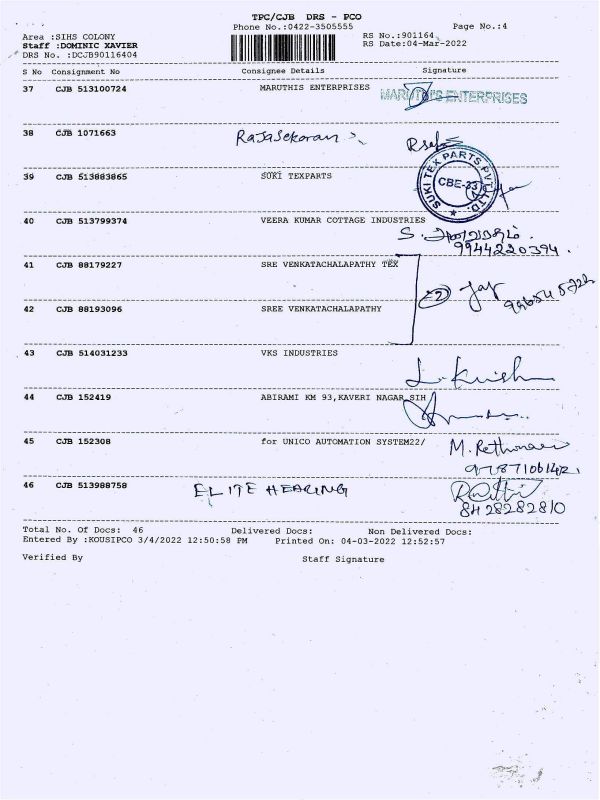 TPC/CJB DRS - PCO
Phone No.:0422-3505555 Page No.:4
Area :SIHS COLONY RS No.:901164
Staff :DOMINIC XAVIER RS Date:04-Mar-2022
DRS No. :DCJB90116404
S No Consignment No Consignee Details Signature
37 CJB 513100724 MARUTHIS ENTERPRISES MARUTHI'S ENTERPRISES
38 CJB 1071663 Rajasekaran
39 CJB 513883865 SUKI TEXPARTS SUKI TEX PARTS PVT LTD CBE-23
40 CJB 513799374 VEERA KUMAR COTTAGE INDUSTRIES
9944220394.
41 CJB 88179227 SRE VENKATACHALAPATHY TEX
42 CJB 88193096 SREE VENKATACHALAPATHY
43 CJB 514031233 VKS INDUSTRIES
44 CJB 152419 ABIRAMI KM 93,KAVERI NAGAR SIH
45 CJB 152308 for UNICO AUTOMATION SYSTEM22/
46 CJB 513988758 ELITE HEARING
8428282810
Total No. Of Docs: 46 Delivered Docs: Non Delivered Docs:
Entered By :KOUSIPCO 3/4/2022 12:50:58 PM Printed On: 04-03-2022 12:52:57
Verified By Staff Signature